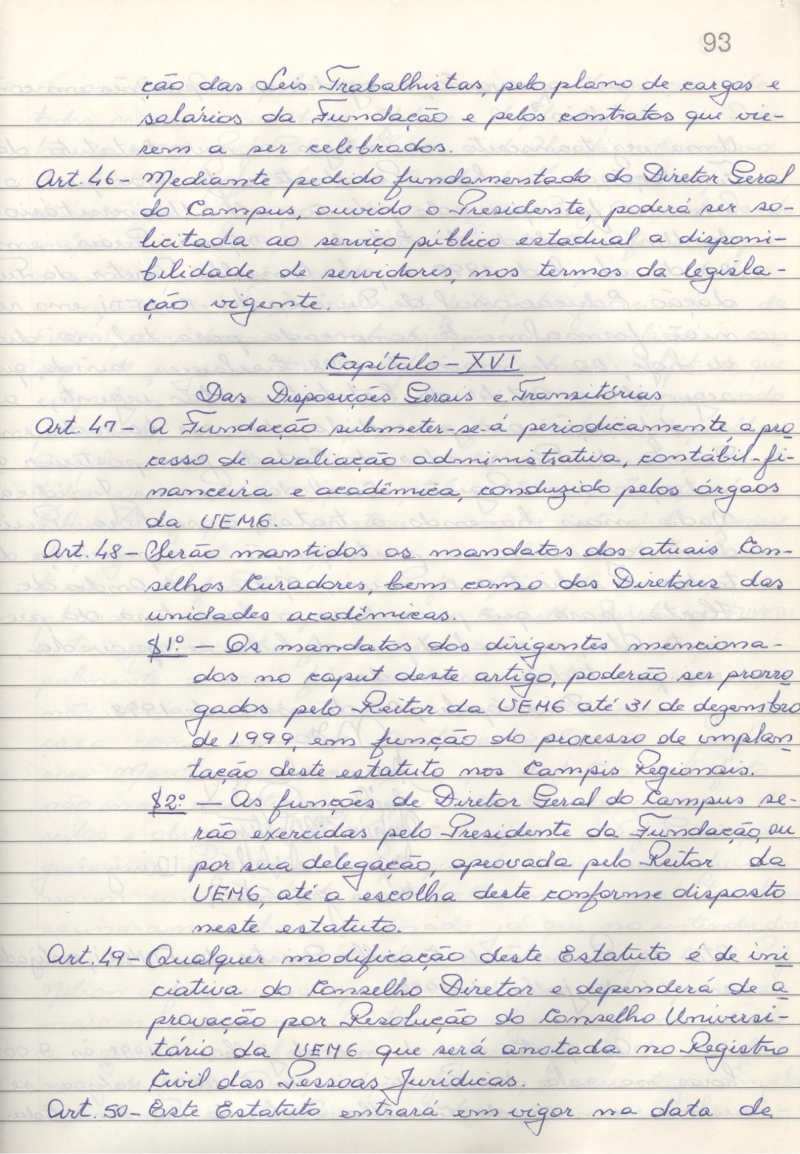 93
ção das Leis Trabalhistas, pelo plano de cargos e
salários da Fundação e pelos contratos que vie-
rem a ser celebrados.
Art. 46 - Mediante pedido fundamentado do Diretor Geral
do Campus, ouvido o Presidente, poderá ser so-
licitada ao serviço público estadual a disponi-
bilidade de servidores, nos termos da legisla-
ção vigente.
Capítulo - XVI
Das Disposições Gerais e Transitórias
Art. 47 - A Fundação submeter-se-á periodicamente, a pro
cesso de avaliação administrativa, contábil-fi-
nanceira e acadêmica, conduzido pelos órgãos
da UEMG.
Art. 48 - Serão mantidos os mandatos dos atuais Con-
selhos Curadores, bem como dos Diretores das
unidades acadêmicas.
§1º - Os mandatos dos dirigentes menciona-
dos no caput deste artigo, poderão ser prorro
gados pelo Reitor da UEMG até 31 de dezembro
de 1999, em função do processo de implan
tação deste estatuto nos Campis Regionais.
§2º - As funções de Diretor Geral do Campus se-
rão exercidas pelo Presidente da Fundação, ou
por sua delegação, aprovada pelo Reitor da
UEMG, até a escolha deste conforme disposto
neste estatuto.
Art. 49 - Qualquer modificação deste Estatuto é de ini
ciativa do Conselho Diretor e dependerá de a
provação por Resolução do Conselho Universi-
tário da UEMG que será anotada no Registro
Civil das Pessoas Jurídicas.
Art. 50 - Este Estatuto entrará em vigor na data de